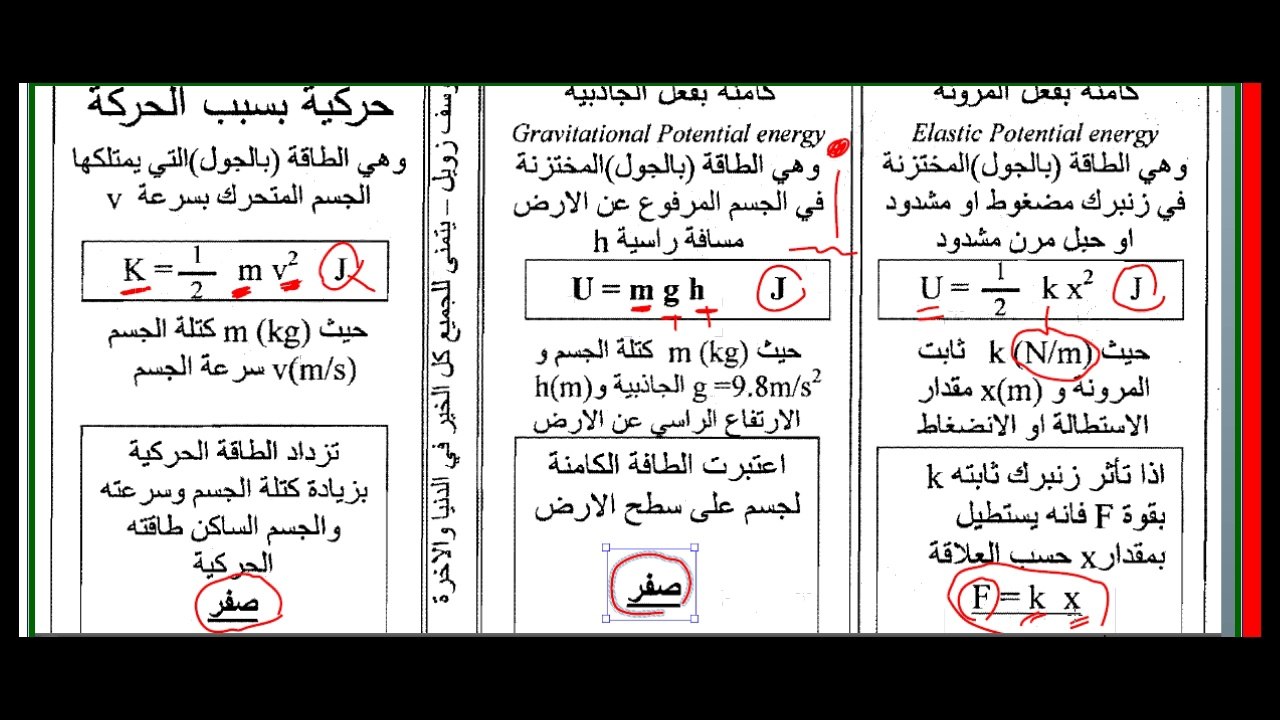 كامنة بفعل المرونة
Elastic Potential energy
وهي الطاقة (بالجول)المختزنة
في زنبرك مضغوط او مشدود
او حبل مرن مشدود
U = 1/2 k x² J
حيث k (N/m) ثابت
المرونة و x(m) مقدار
الاستطالة او الانضغاط
اذا تأثر زنبرك ثابته k
بقوة F فانه يستطيل
بمقدار x حسب العلاقة
F = k x
كامنة بفعل الجاذبية
Gravitational Potential energy
وهي الطاقة (بالجول)المختزنة
في الجسم المرفوع عن الارض
مسافة راسية h
U = m g h J
حيث m (kg) كتلة الجسم و
g =9.8m/s² الجاذبية و h(m)
الارتفاع الراسي عن الارض
اعتبرت الطافة الكامنة
لجسم على سطح الارض
صفر
يتمنى للجميع كل الخير في الدنيا والاخرة
حركية بسبب الحركة
وهي الطاقة (بالجول)التي يمتلكها
الجسم المتحرك بسرعة v
K = 1/2 m v² J
حيث m (kg) كتلة الجسم
v(m/s) سرعة الجسم
تزداد الطاقة الحركية
بزيادة كتلة الجسم وسرعته
والجسم الساكن طاقته
الحركية
صفر